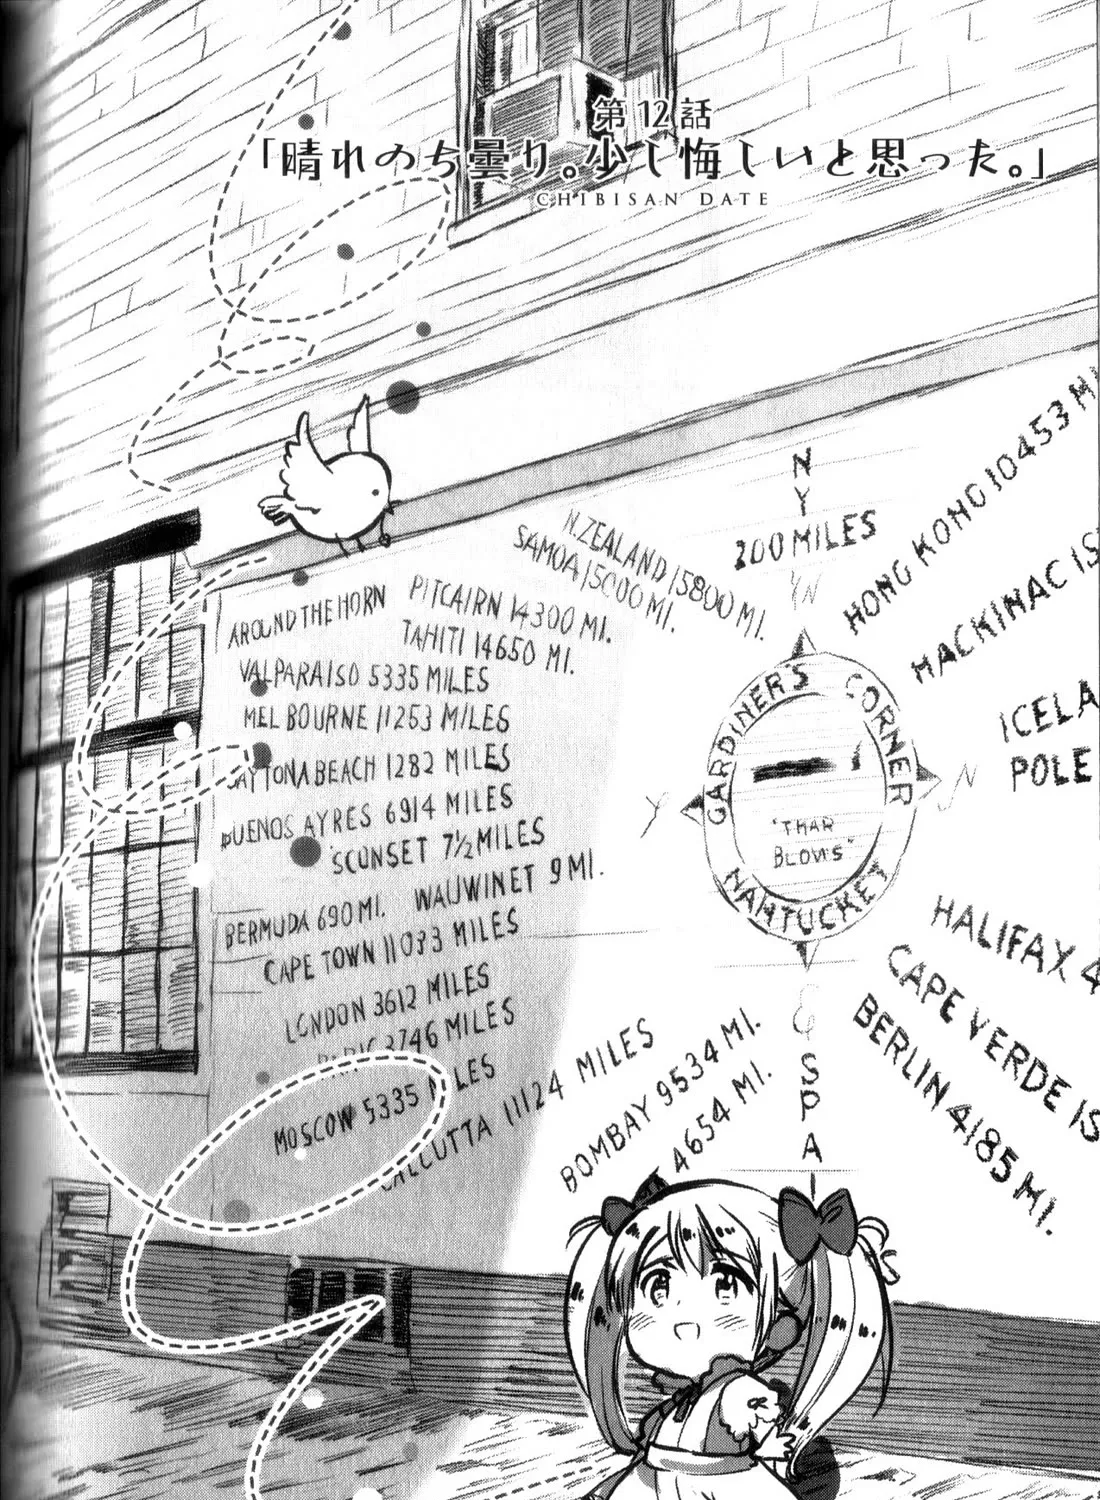 第12話
「晴れのち曇り。少し悔しいと思った。」
CHIBISAN DATE
N
Y
200 MILES
N. ZEALAND 15800 MI.
SAMOA 15000 MI.
HONG KONG 10453 MI
MACKINAC IS
ICELA
POLE
AROUND THE HORN
PITCAIRN 14300 MI.
TAHITI 14650 MI.
VALPARAISO 5335 MILES
MELBOURNE 11253 MILES
DAYTONA BEACH 1282 MILES
BUENOS AYRES 6914 MILES
'SCONSET 7½ MILES
BERMUDA 690 MI. WAUWINET 9 MI.
CAPE TOWN 11033 MILES
LONDON 3612 MILES
3746 MILES
MOSCOW 5335 MILES
CALCUTTA 11124 MILES
BOMBAY 9534 MI.
4654 MI.
GARDINER'S CORNER
"THAR
BLOWS"
NANTUCKET
N
Y
S
P
A
HALIFAX 4
CAPE VERDE IS
BERLIN 4185 MI.